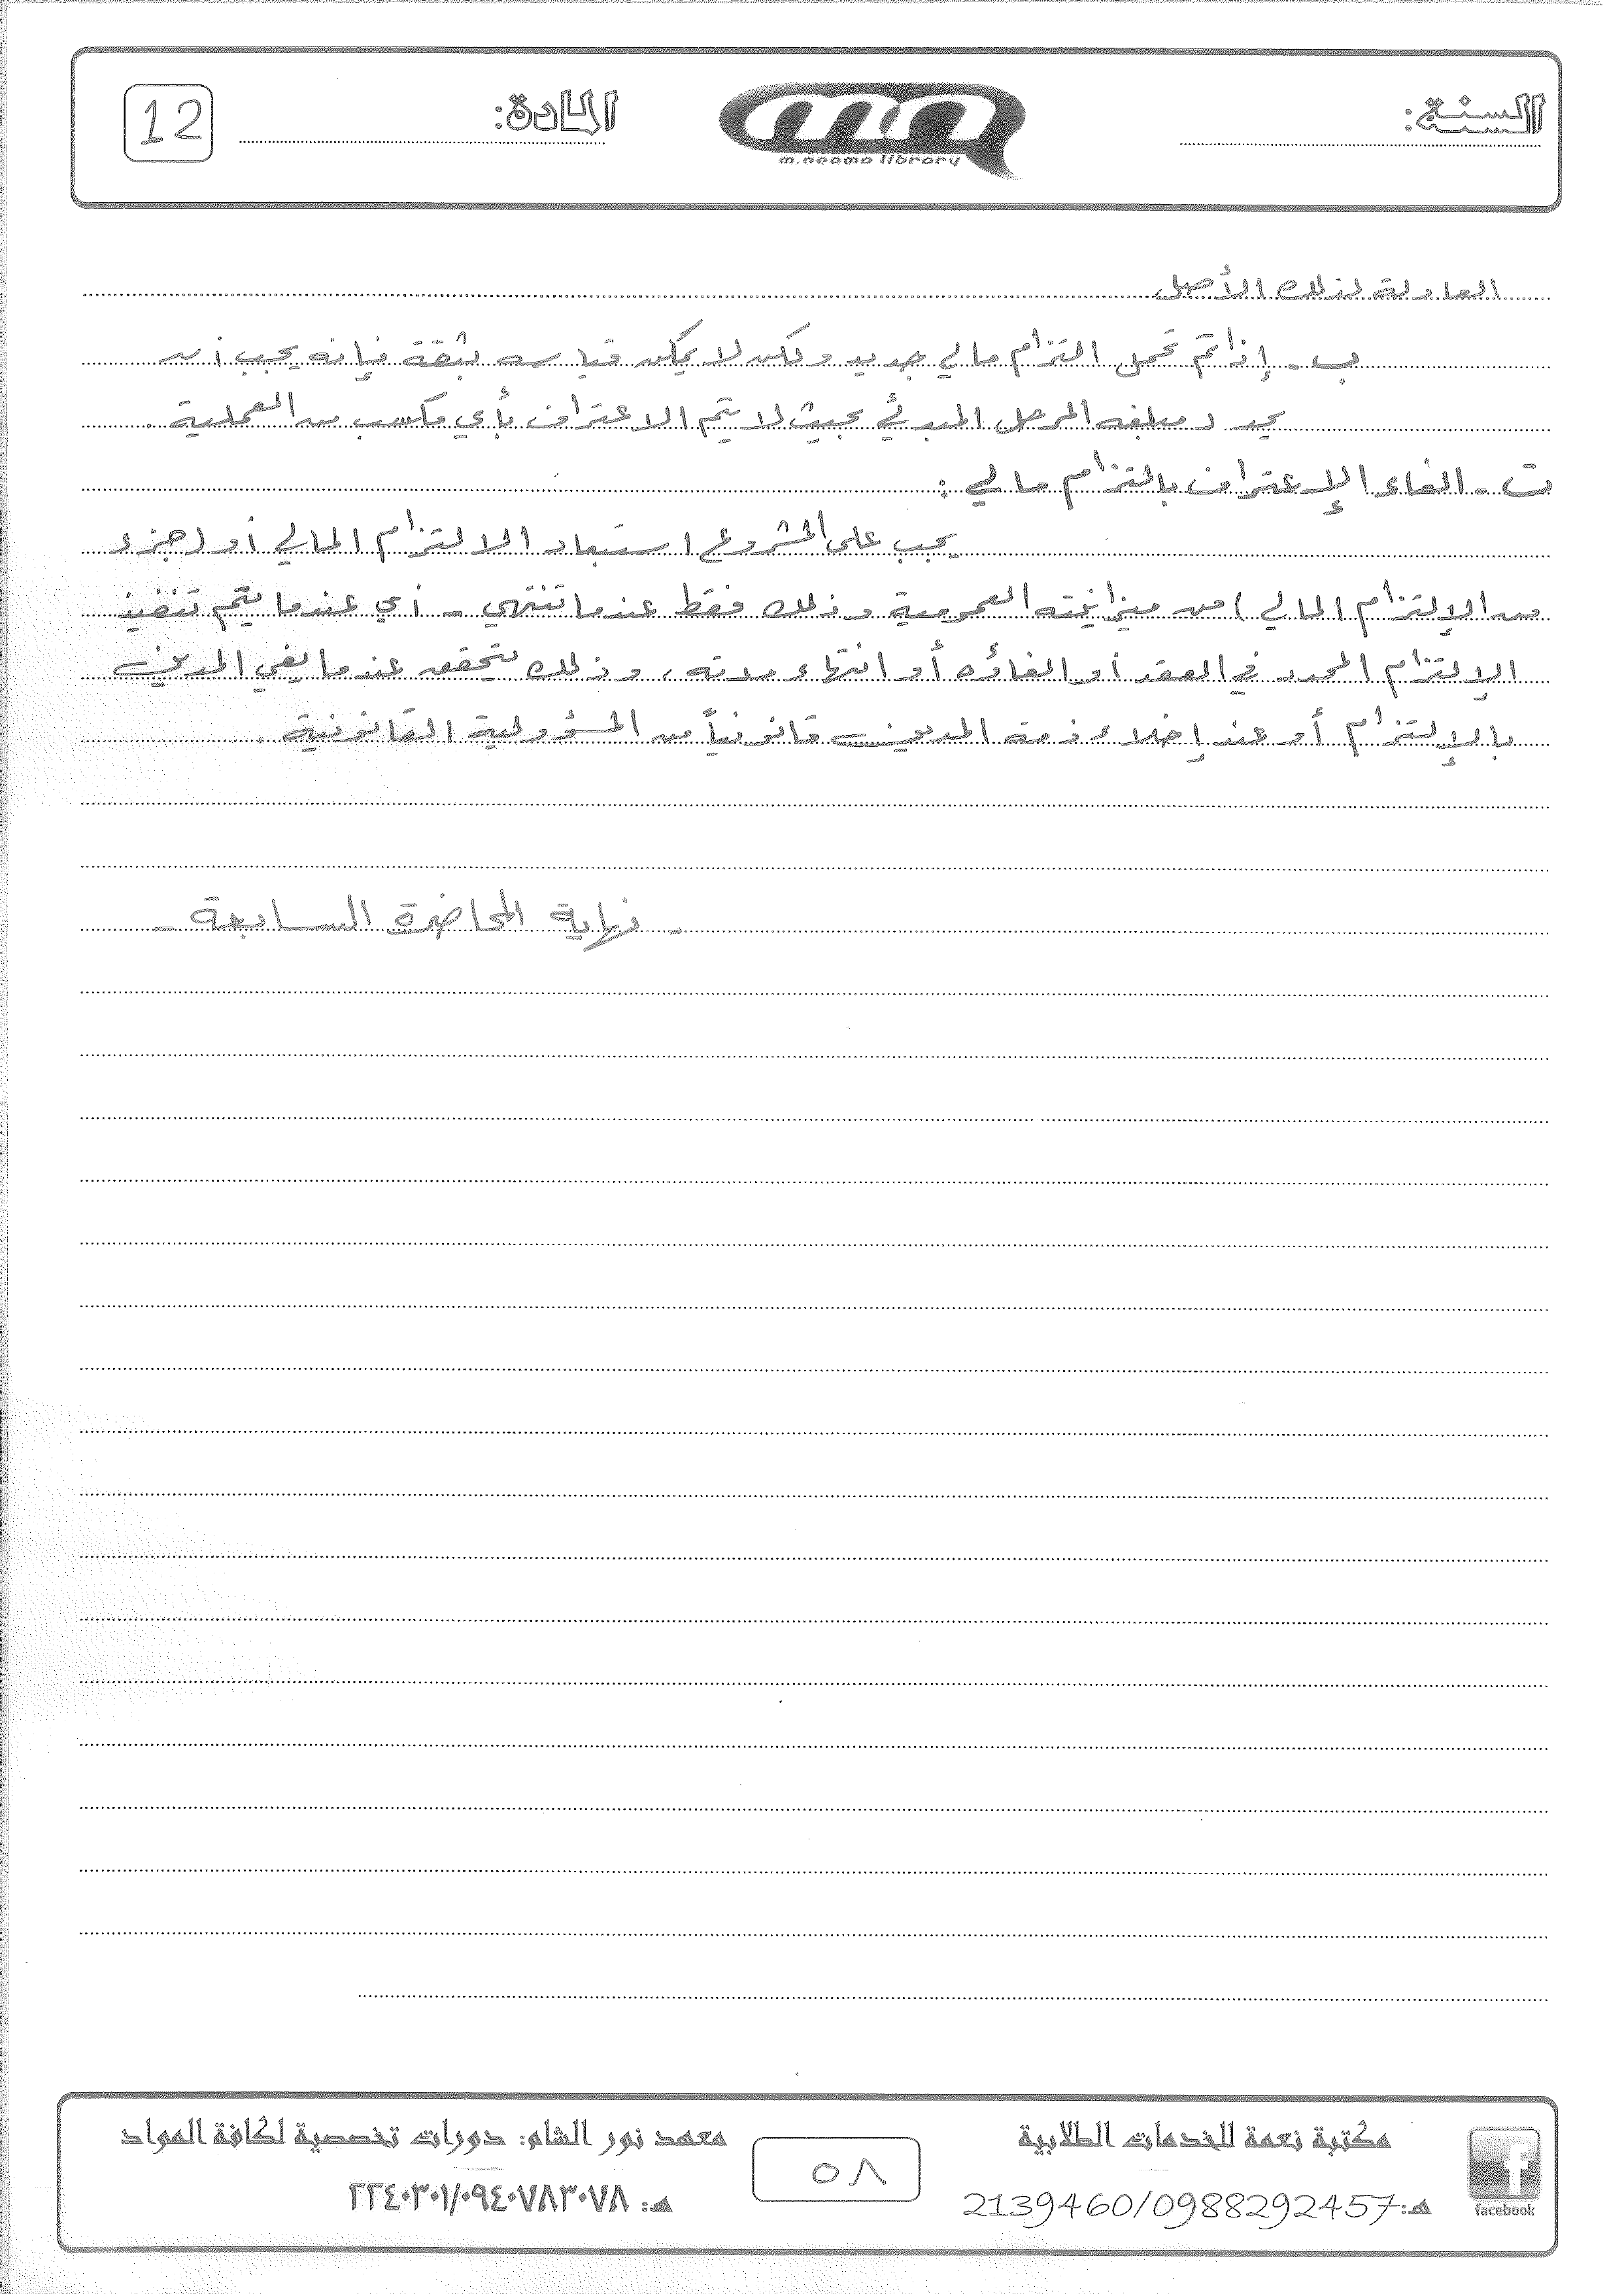 السنة:
m.neama library
المادة:
12
العادلة لذلك الأصل
ب - إذا تم تحمل التزام مالي جديد ولكن لا يمكن قياسه بثقة فإنه يجب أن
يحدد مبلغه المرحل المبدئي بحيث لا يتم الاعتراف بأي مكسب من العملية .
ت - الغاء الإعتراف بالتزام مالي :
يجب على المشروع استبعاد الالتزام المالي أو (جزء
من الإلتزام المالي) من ميزانيته العمومية وذلك فقط عندما تنتهي - أي عندما يتم تنفيذ
الإلتزام المحدد في العقد أو الغاؤه أو انتهاء مدته ، وذلك يتحقق عندما يفي المدين
بالإلتزام أو عند إخلاء ذمة المدين قانونياً من المسؤولية القانونية .
- نهاية المحاضرة السابعة -
مكتبة نعمة للخدمات الطلابية
هـ: 2139460/0988292457
facebook
٥٨
معهد نور الشام: دورات تخصصية لكافة المواد
هـ: ٢٢٤٠٣٠١/٠٩٤٠٧٨٣٠٧٨